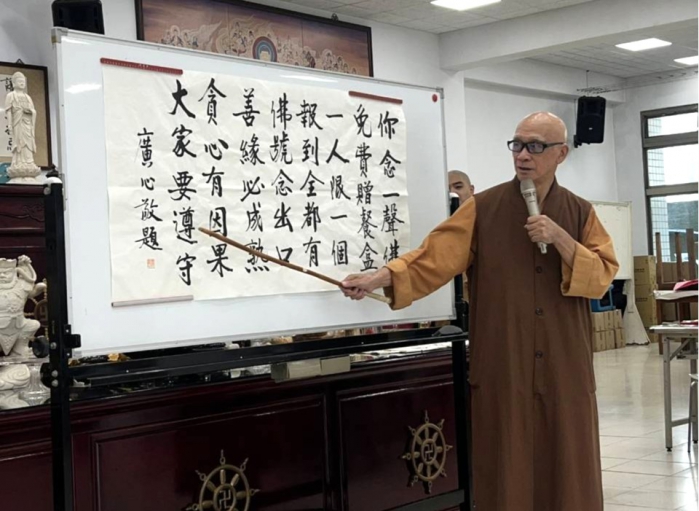 你念一聲佛
免費贈餐盒
一人限一個
報到全都有
佛號念出口
善緣必成熟
貪心有因果
大家要遵守
廣心敬題